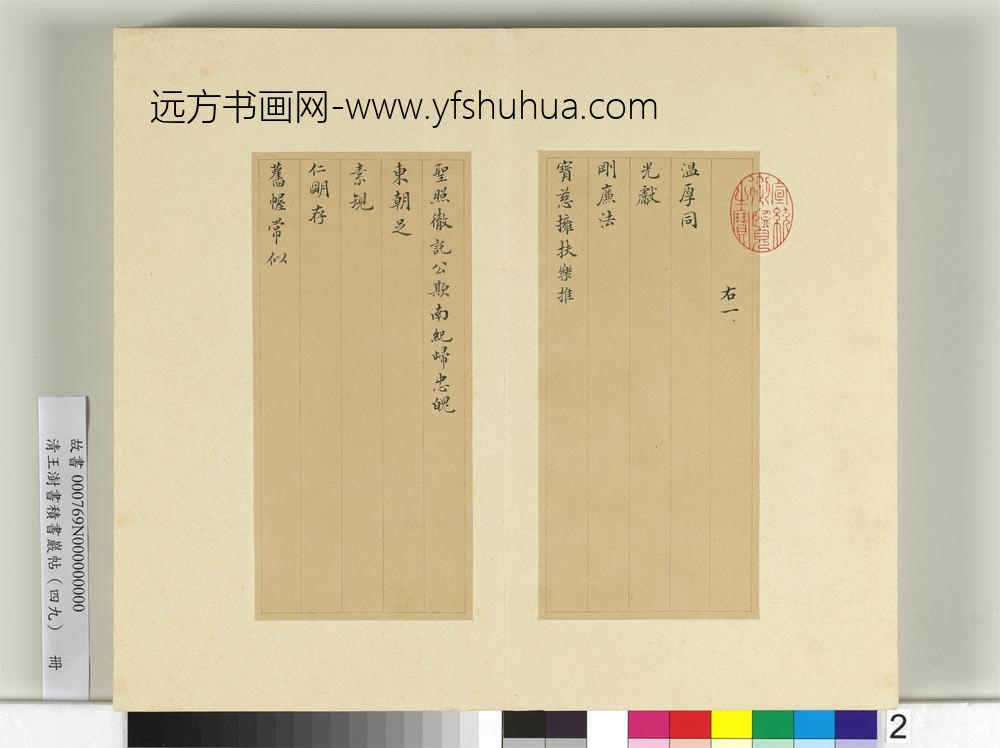 远方书画网-www.yfshuhua.com
右一
温厚同
光獻
剛廉法
寶慈擁扶樂推
聖照徹託公欺南紀歸忠魄
東朝足
素規
仁明存
舊幄常似
宣統御覽之寶
故書 000769N000000000
清王澍書積書巖帖(四九) 冊
2